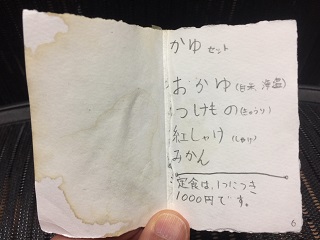 かゆ セット
おかゆ(白米、海塩)
つけもの(きゅうり)
紅しゃけ(しゃけ)
みかん
定食は、1つにつき
1000円です。
6